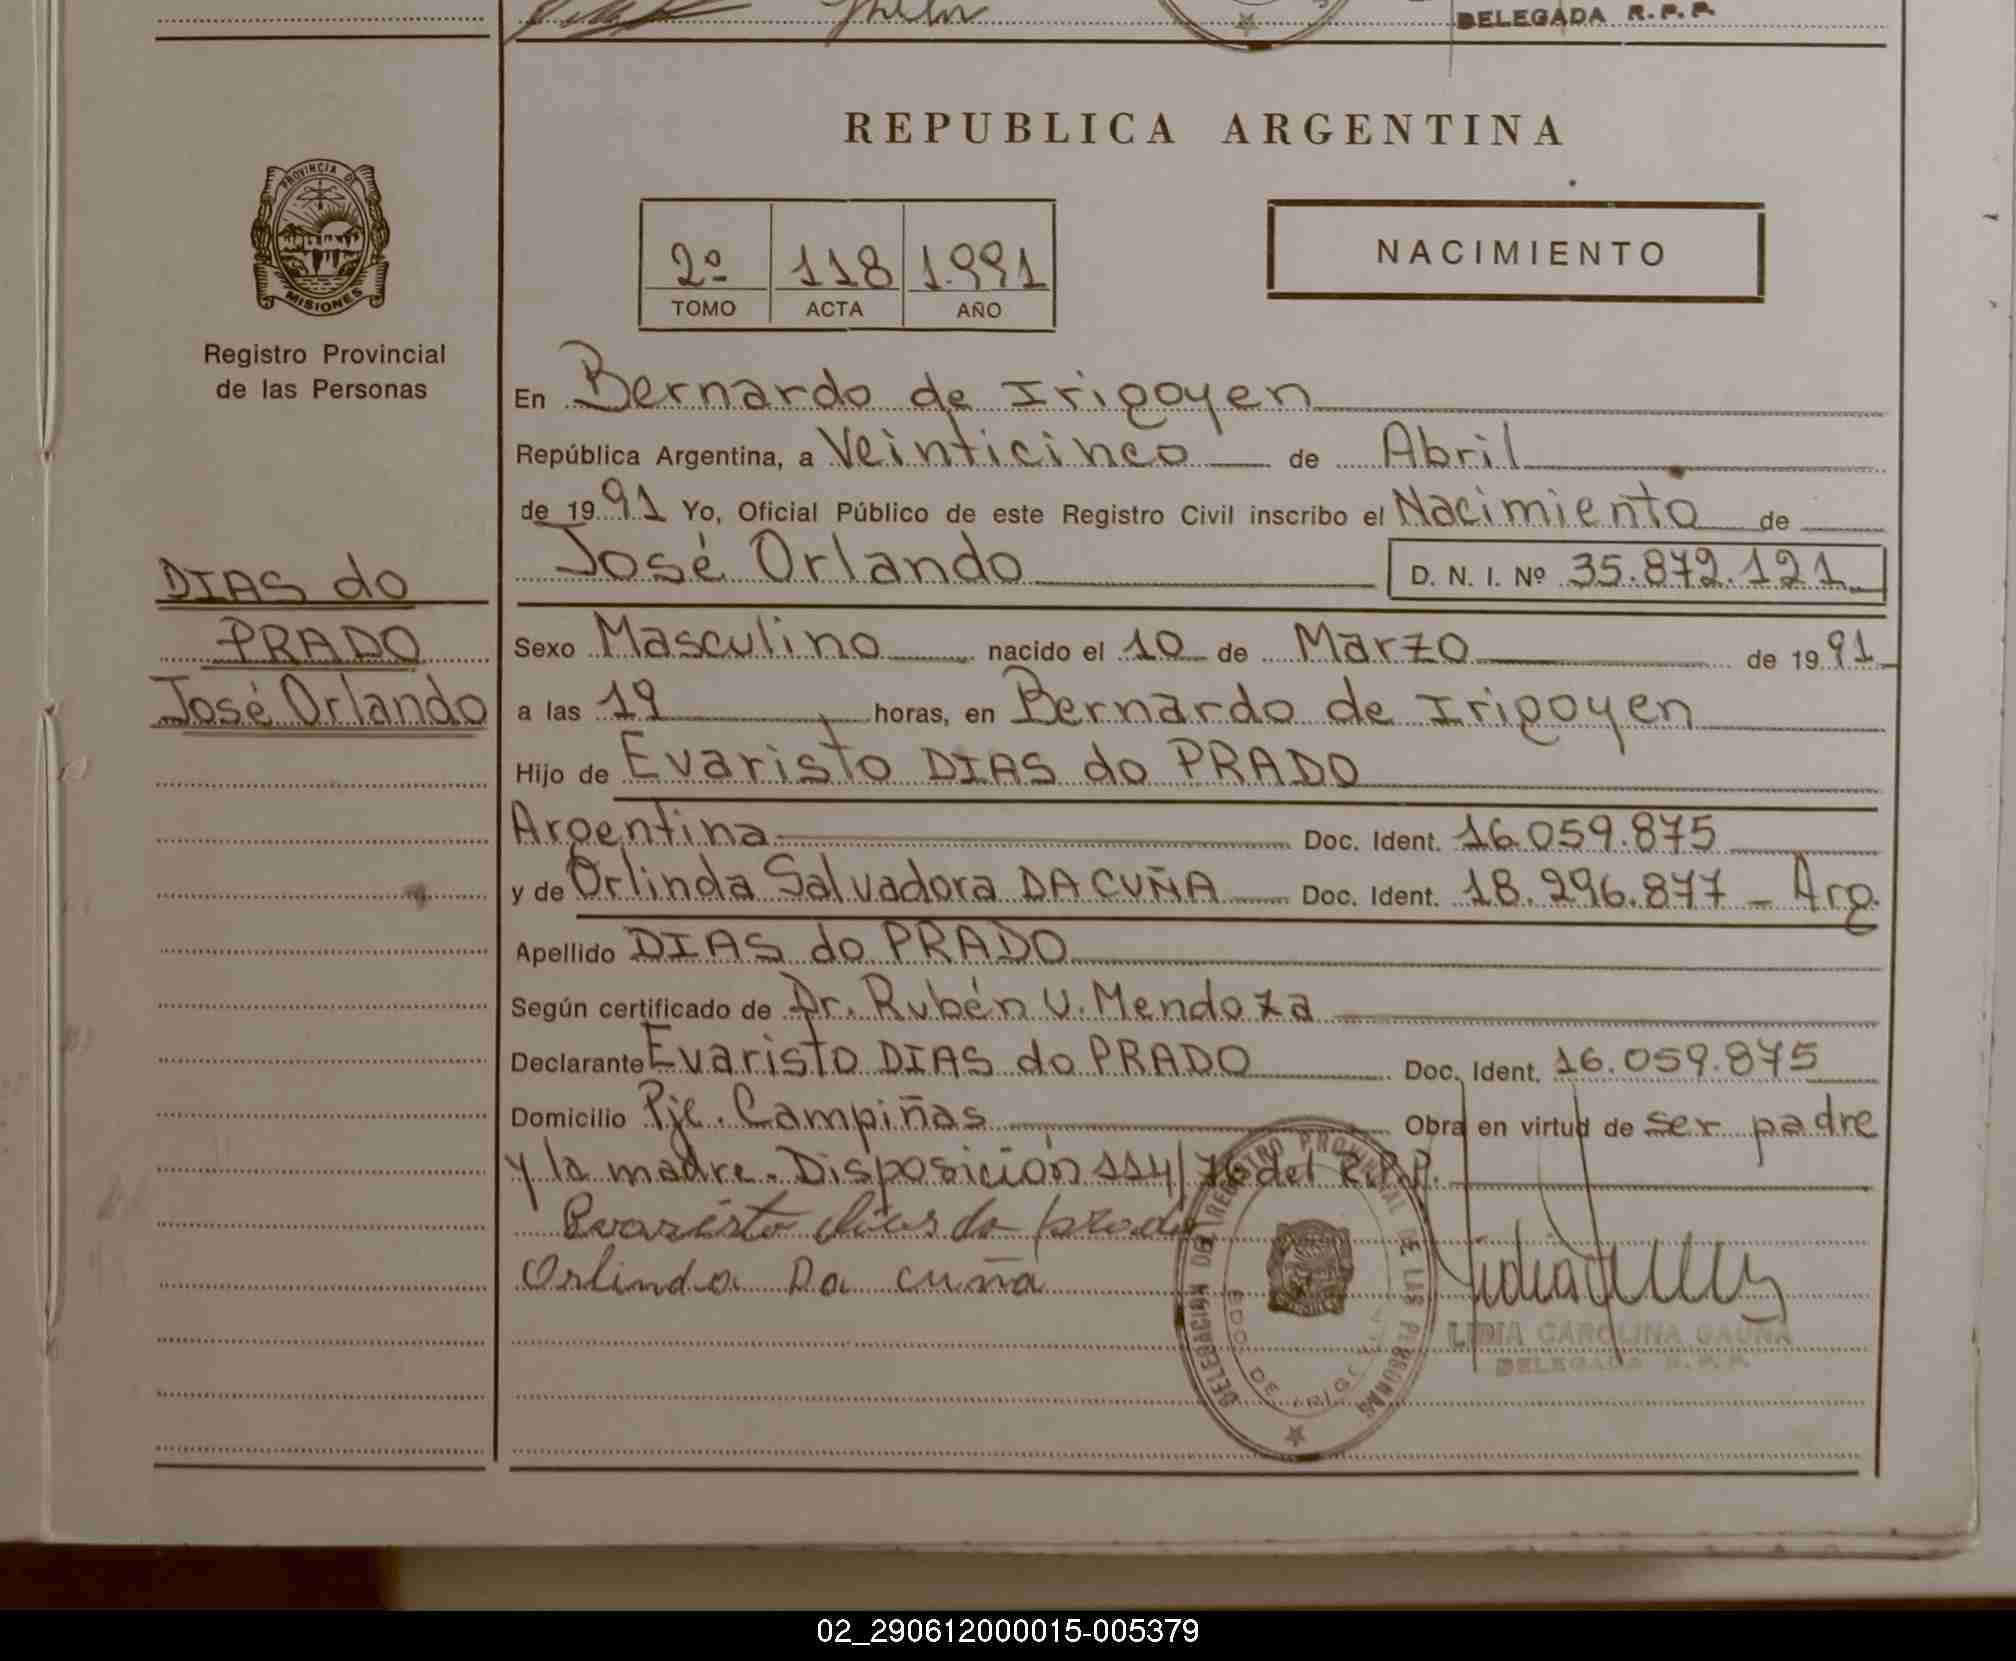 DELEGADA R.P.P.
REPUBLICA ARGENTINA
PROVINCIA DE
MISIONES
Registro Provincial
de las Personas
2º 118 1.991
TOMO ACTA AÑO
NACIMIENTO
En Bernardo de Irigoyen
República Argentina, a Veinticinco de Abril
de 1991 Yo, Oficial Público de este Registro Civil inscribo el Nacimiento de
José Orlando D. N. I. Nº 35.872.121
DIAS do
PRADO
José Orlando
Sexo Masculino nacido el 10 de Marzo de 1991
a las 19 horas, en Bernardo de Irigoyen
Hijo de Evaristo DIAS do PRADO
Argentina Doc. Ident. 16.059.875
y de Orlinda Salvadora DA CUÑA Doc. Ident. 18.296.877 - Arg.
Apellido DIAS do PRADO
Según certificado de Dr. Rubén U. Mendoza
Declarante Evaristo DIAS do PRADO Doc. Ident. 16.059.875
Domicilio Pje. Campiñas Obra en virtud de ser padre
y la madre. Disposición 114/76 del R.P.P.
Evaristo dias do prado
Orlinda Da cuña
DELEGACION DEL REGISTRO PROVINCIAL DE LAS PERSONAS
BDO. DE IRIGOYEN
LIDIA CAROLINA GAUNA
DELEGADA R.P.P.
02_290612000015-005379